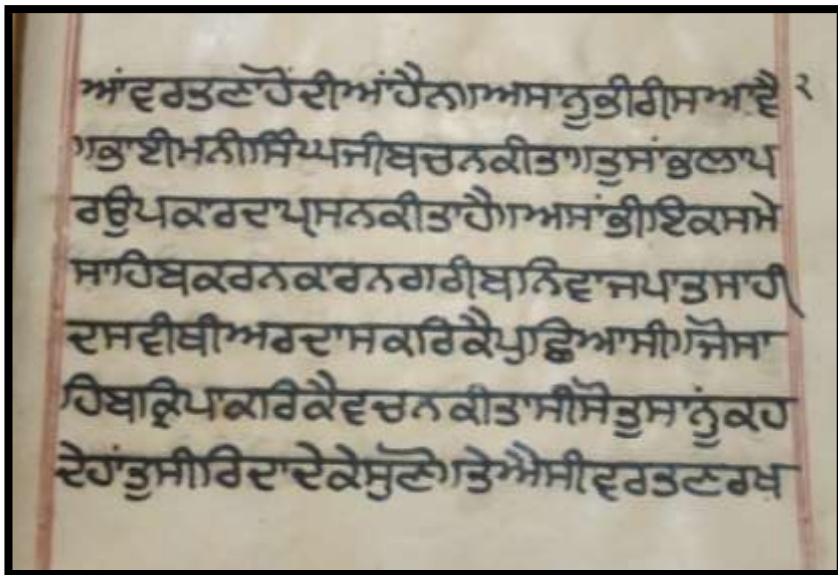 ਆਂਵਰਤਣਾਹੋਂਦੀਅਂਹੈਨ॥ਅਸਾਨੂਭੀਰੀਸਆਵੈ ੨
॥ਭਾਈਮਨੀਸਿੰਘਜੀਬਚਨਕੀਤਾ॥ਤੁਸਾਂਭਲਾਪ
ਰਉਪਕਾਰਦਾਪ੍ਰਸਨਕੀਤਾਹੈ॥ਅਸਾਂਭੀਇਕਸਮੇ
ਸਾਹਿਬਕਰਨਕਾਰਨਗਰੀਬਨਿਵਾਜਪਾਤਸਾਹੀ
ਦਸਵੀਥੀਅਰਦਾਸਕਰਿਕੈਪੁਛਿਆਸੀ॥ਜੋਸਾ
ਹਿਬਕ੍ਰਿਪਾਕਰਿਕੈਵਚਨਕੀਤਾਸੀਸੋਤੁਸਾਨੂੰਕਹ
ਦੇਹਾਂਤੁਸੀਰਿਦਾਦੇਕੇਸੁਣੋ॥ਤੇਐਸੀਵਰਤਣਰਖ